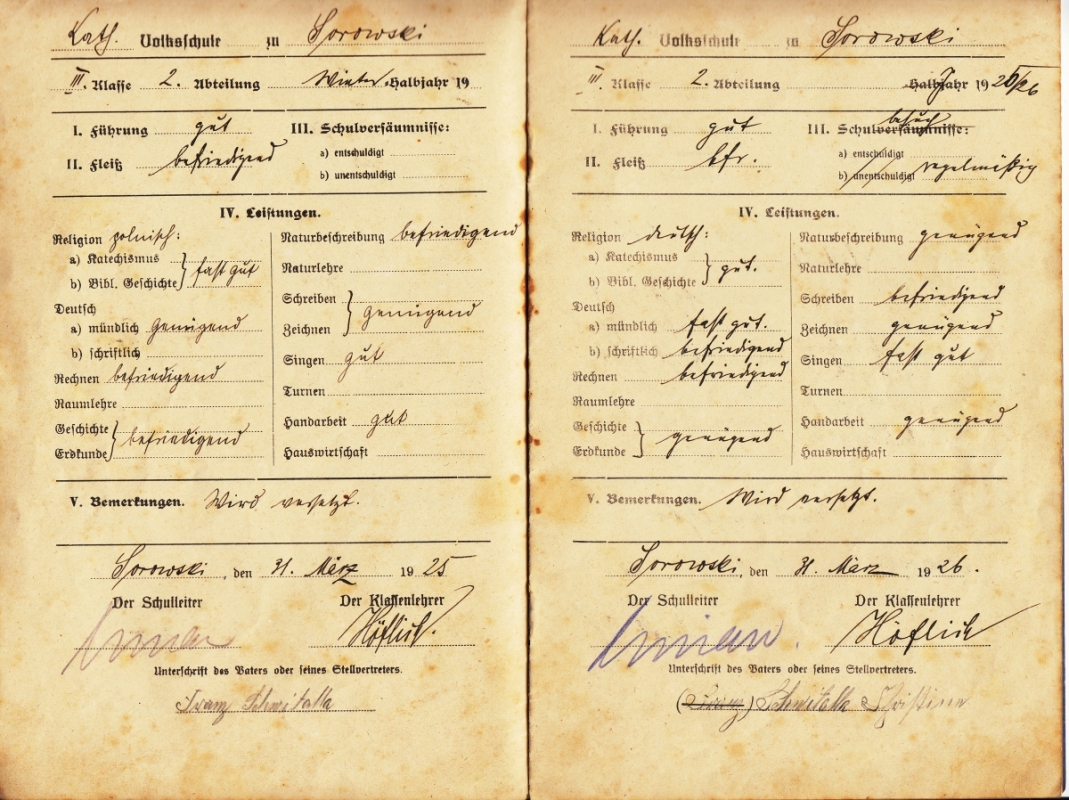 Kath. Volksschule zu Sorowski
III. Klasse 2. Abteilung Winter Halbjahr 19
I. Führung gut
II. Fleiß befriedigend
III. Schulversäumnisse:
a) entschuldigt
b) unentschuldigt
IV. Leistungen.
Religion polnisch:
a) Katechismus
b) Bibl. Geschichte fast gut
Deutsch
a) mündlich genügend
b) schriftlich
Rechnen befriedigend
Raumlehre
Geschichte
Erdkunde befriedigend
Naturbeschreibung befriedigend
Naturlehre
Schreiben
Zeichnen genügend
Singen gut
Turnen
Handarbeit gut
Hauswirtschaft
V. Bemerkungen. Wird versetzt.
Sorowski, den 31. März 1925
Der Schulleiter Der Klassenlehrer
Höflich.
Unterschrift des Vaters oder seines Stellvertreters.
Franz Schwitalla
Kath. Volksschule zu Sorowski
III. Klasse 2. Abteilung Halbjahr 1925/26
I. Führung gut
II. Fleiß bfr.
III. Schulversäumnisse:
besuch
a) entschuldigt
b) unentschuldigt regelmäßig
IV. Leistungen.
Religion deutsch:
a) Katechismus
b) Bibl. Geschichte gut.
Deutsch
a) mündlich fast gut.
b) schriftlich befriedigend
Rechnen befriedigend
Raumlehre
Geschichte
Erdkunde genügend
Naturbeschreibung genügend
Naturlehre
Schreiben befriedigend
Zeichnen genügend
Singen fast gut
Turnen
Handarbeit genügend
Hauswirtschaft
V. Bemerkungen. Wird versetzt.
Sorowski, den 31. März 1926.
Der Schulleiter Der Klassenlehrer
Höflich
Unterschrift des Vaters oder seines Stellvertreters.
Schwitalla Christine